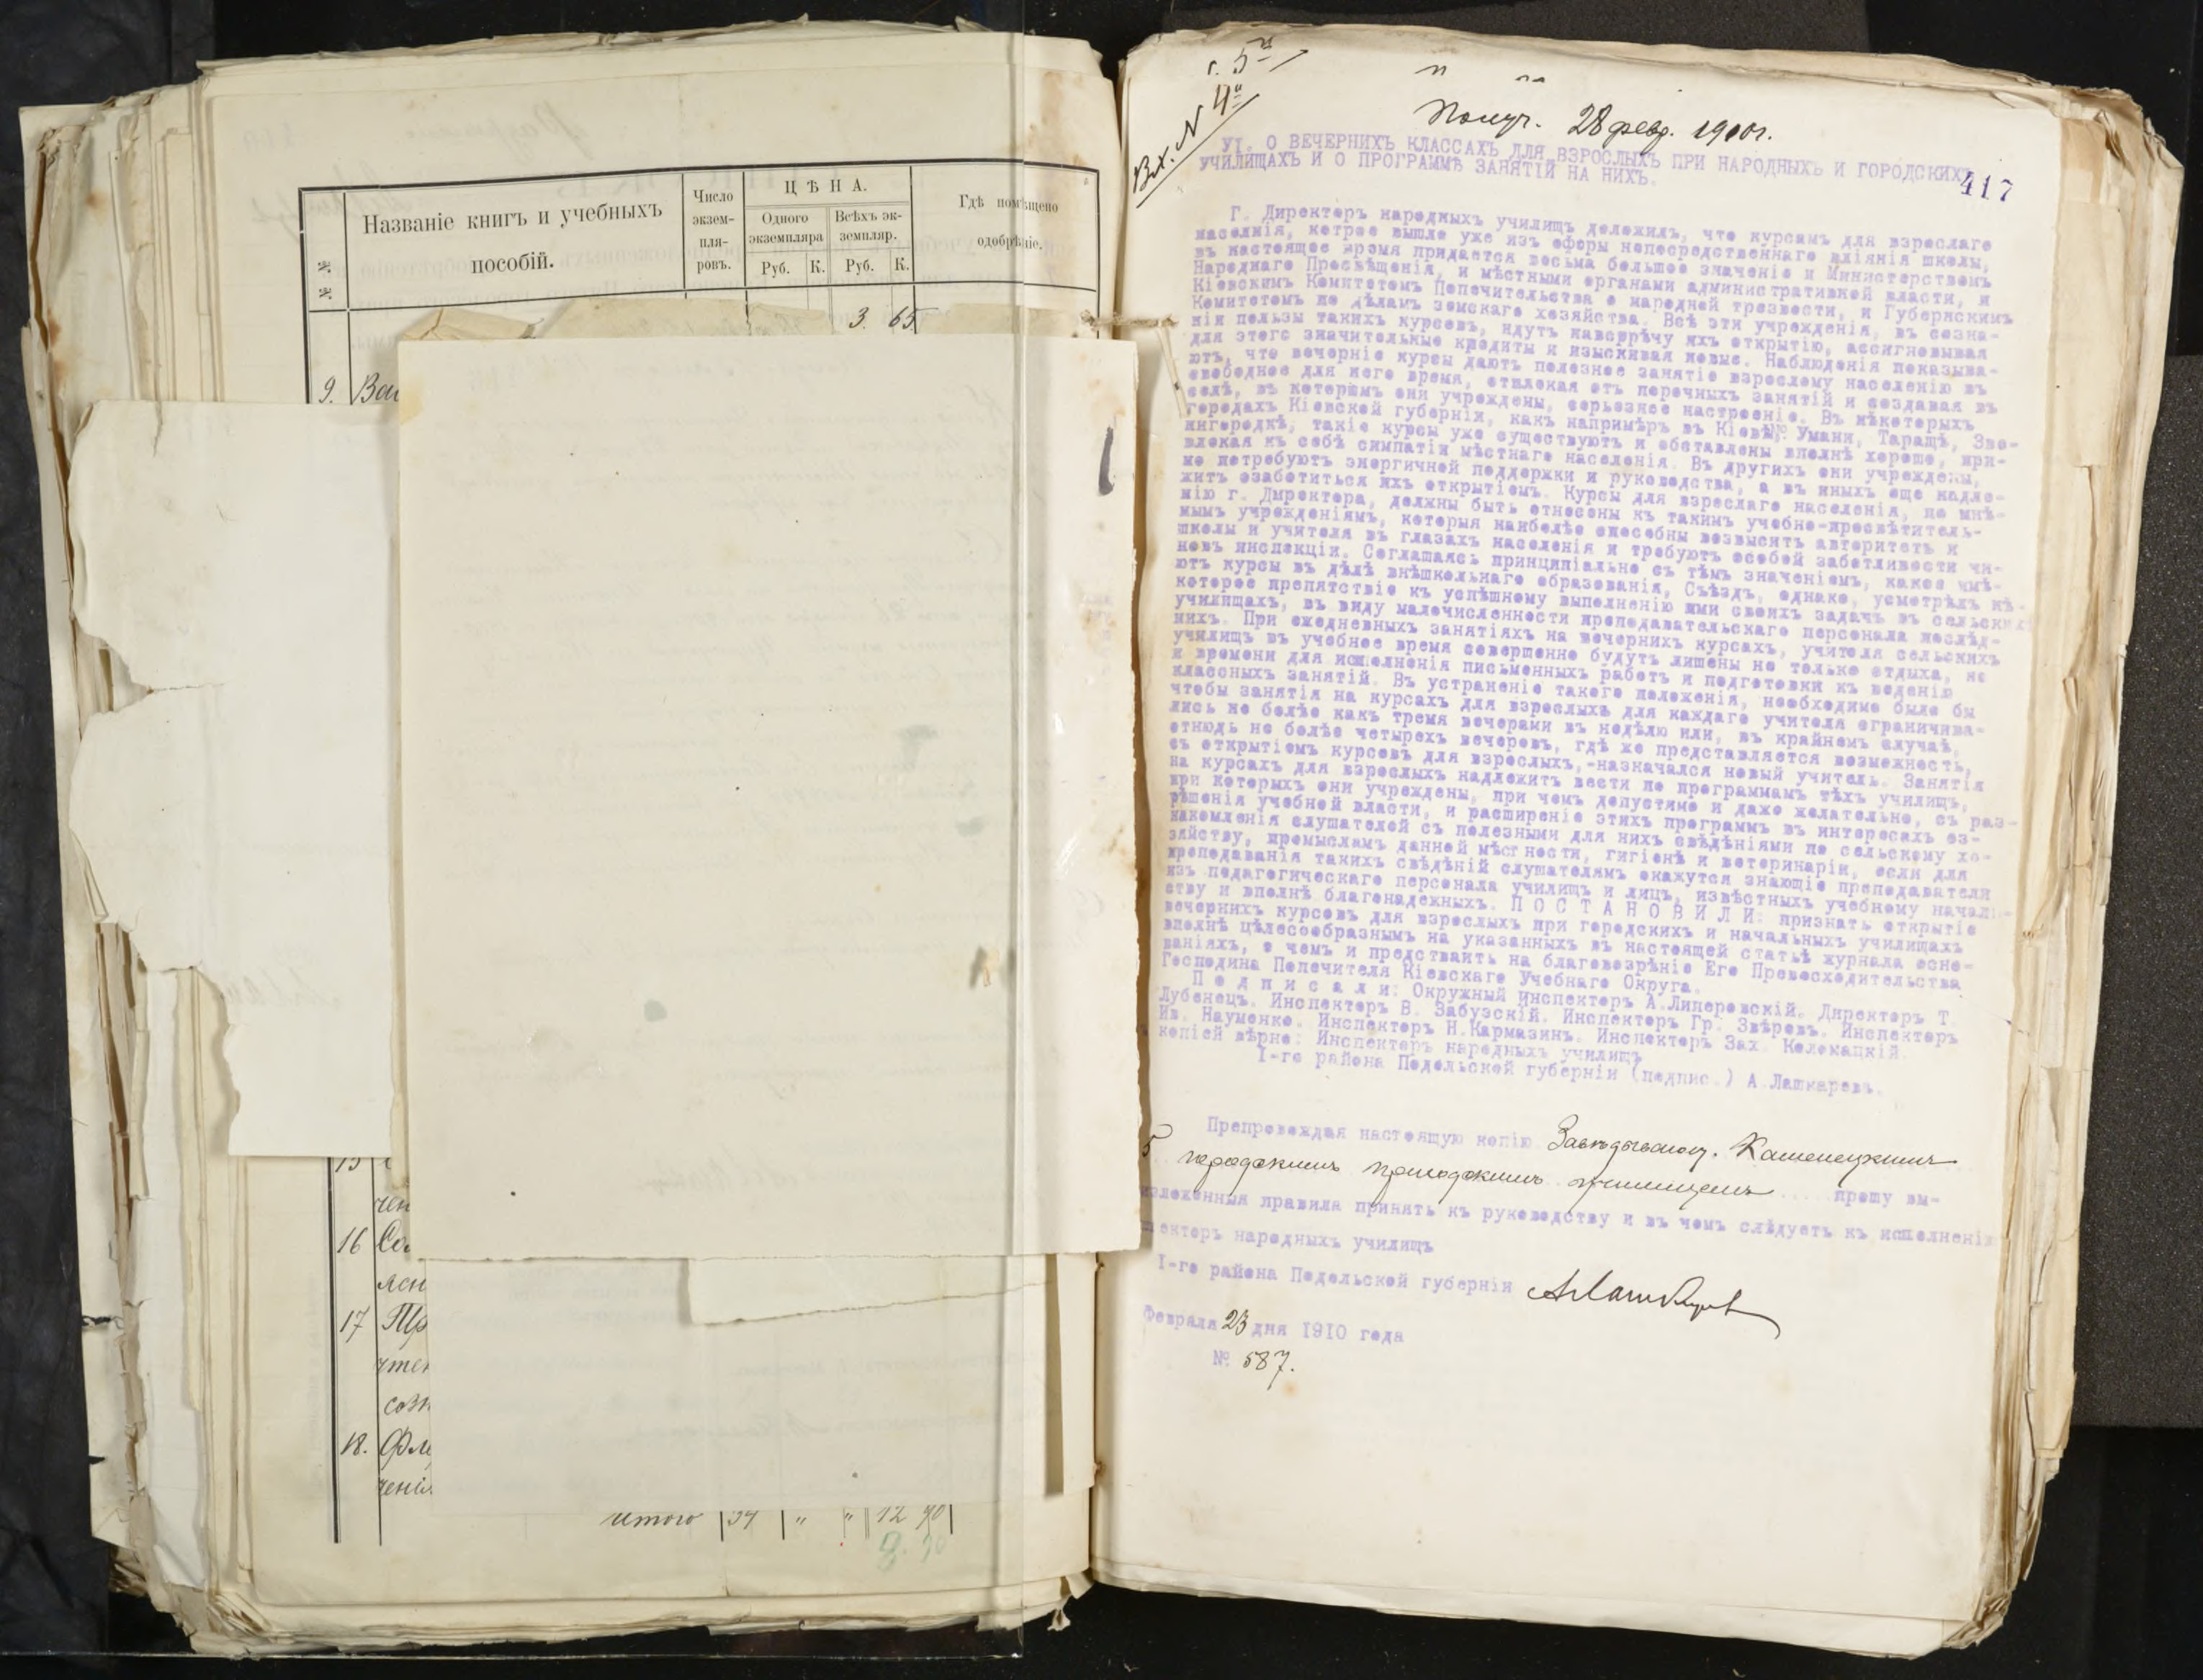 № №
Названіе книгъ и учебныхъ
пособій.
Число
экзем-
пля-
ровъ.
ЦѢНА.
Одного
экземпляра
Всѣхъ эк-
земпляр.
Руб. К. Руб. К.
Гдѣ помѣщено
одобреніе.
3. 65
9.
16
17
18.
итого 34 " " 12 90
Вх. № 4
Получ. 28 февр. 1910 г.
417
УІ. О ВЕЧЕРНИХЪ КЛАССАХЪ ДЛЯ ВЗРОСЛЫХЪ ПРИ НАРОДНЫХЪ И ГОРОДСКИХЪ
УЧИЛИЩАХЪ И О ПРОГРАММѢ ЗАНЯТІЙ НА НИХЪ.
Г. Директоръ народныхъ училищъ доложилъ, что курсамъ для взрослаго
населнія, котрое вышло уже изъ сферы непосредственнаго вліянія школы,
въ настоящее время придается весьма большое значеніе и Министерствомъ
Народнаго Просвѣщенія, и мѣстными органами административной власти, и
Кіевскимъ Комитетомъ Попечительства о народной трезвости, и Губернскимъ
Комитетомъ по дѣламъ земскаго хозяйства. Всѣ эти учрежденія, въ созна-
ніи пользы такихъ курсовъ, идутъ навстрѣчу ихъ открытію, ассигновывая
для этого значительные кредиты и изыскивая новые. Наблюденія показыва-
ютъ, что вечерніе курсы даютъ полезное занятіе взрослому населенію въ
свободное для него время, отвлекая отъ порочныхъ занятій и создавая въ
селѣ, въ которомъ они учреждены, серьезное настроеніе. Въ нѣкоторыхъ
городахъ Кіевской губерніи, какъ напримѣръ въ Кіевѣ, Умани, Таращѣ, Зве-
нигородкѣ, такіе курсы уже существуютъ и обставлены вполнѣ хорошо, при-
влекая къ себѣ симпатіи мѣстнаго населенія. Въ другихъ они учреждены,
но потребуютъ энергичной поддержки и руководства, а въ иныхъ еще надле-
житъ озаботиться ихъ открытіемъ. Курсы для взрослаго населенія, по мнѣ-
нію г. Директора, должны быть отнесены къ такимъ учебно-просвѣтитель-
нымъ учрежденіямъ, которыя наиболѣе способны возвысить авторитетъ и
школы и учителя въ глазахъ населенія и требуютъ особой заботливости чи-
новъ инспекціи. Соглашаясь принципіально съ тѣмъ значеніемъ, какое имѣ-
ютъ курсы въ дѣлѣ внѣшкольнаго образованія, Съѣздъ, однако, усмотрѣлъ нѣ-
которое препятствіе къ успѣшному выполненію ими своихъ задачъ въ сельскихъ
училищахъ, въ виду малочисленности преподавательскаго персонала послѣд-
нихъ. При ежедневныхъ занятіяхъ на вечернихъ курсахъ, учителя сельскихъ
училищъ въ учебное время совершенно будутъ лишены не только отдыха, но
и времени для исполненія письменныхъ работъ и подготовки къ веденію
классныхъ занятій. Въ устраненіе такого положенія, необходимо было бы
чтобы занятія на курсахъ для взрослыхъ для каждаго учителя ограничива-
лись не болѣе какъ тремя вечерами въ недѣлю или, въ крайнемъ случаѣ,
отнюдь не болѣе четырехъ вечеровъ, гдѣ же представляется возможность,
съ открытіемъ курсовъ для взрослыхъ,-назначался новый учитель. Занятія
на курсахъ для взрослыхъ надлежитъ вести по программамъ тѣхъ училищъ,
при которыхъ они учреждены, при чемъ допустимо и даже желательно, съ раз-
рѣшенія учебной власти, и расширеніе этихъ программъ въ интересахъ оз-
накомленія слушателей съ полезными для нихъ свѣдѣніями по сельскому хо-
зяйству, промысламъ данной мѣстности, гигіенѣ и ветеринаріи, если для
преподаванія такихъ свѣдѣній слушателямъ окажутся знающіе преподаватели
изъ педагогическаго персонала училищъ и лицъ, извѣстныхъ учебному началь-
ству и вполнѣ благонадежныхъ. П О С Т А Н О В И Л И: признать открытіе
вечернихъ курсовъ для взрослыхъ при городскихъ и начальныхъ училищахъ
вполнѣ цѣлесообразнымъ на указанныхъ въ настоящей статьѣ журнала осно-
ваніяхъ, о чемъ и предстваить на благовозрѣніе Его Превосходительства
Господина Попечителя Кіевскаго Учебнаго Округа.
П о д п и с а л и: Окружный Инспекторъ А.Липеровскій. Директоръ Т.
Лубенецъ. Инспекторъ В. Забузскій. Инспекторъ Гр. Звѣревъ. Инспекторъ
Ив. Науменко. Инспекторъ Н.Кармазинъ. Инспекторъ Зах. Коломацкій.
копіей вѣрно: Инспекторъ народныхъ училищъ
І-го района Подольской губерніи (подпис.) А.Лашкаревъ.
Препровождая настоящую копію Завѣдывающ. Каменецкимъ
5 городскимъ приходскимъ училищемъ прошу вы-
изложенныя правила принять къ руководству и въ чемъ слѣдуетъ къ исполненію
пекторъ народныхъ училищъ
І-го района Подольской губерніи АЛашкаревъ
Февраля 23 дня 1910 года
№ 587.